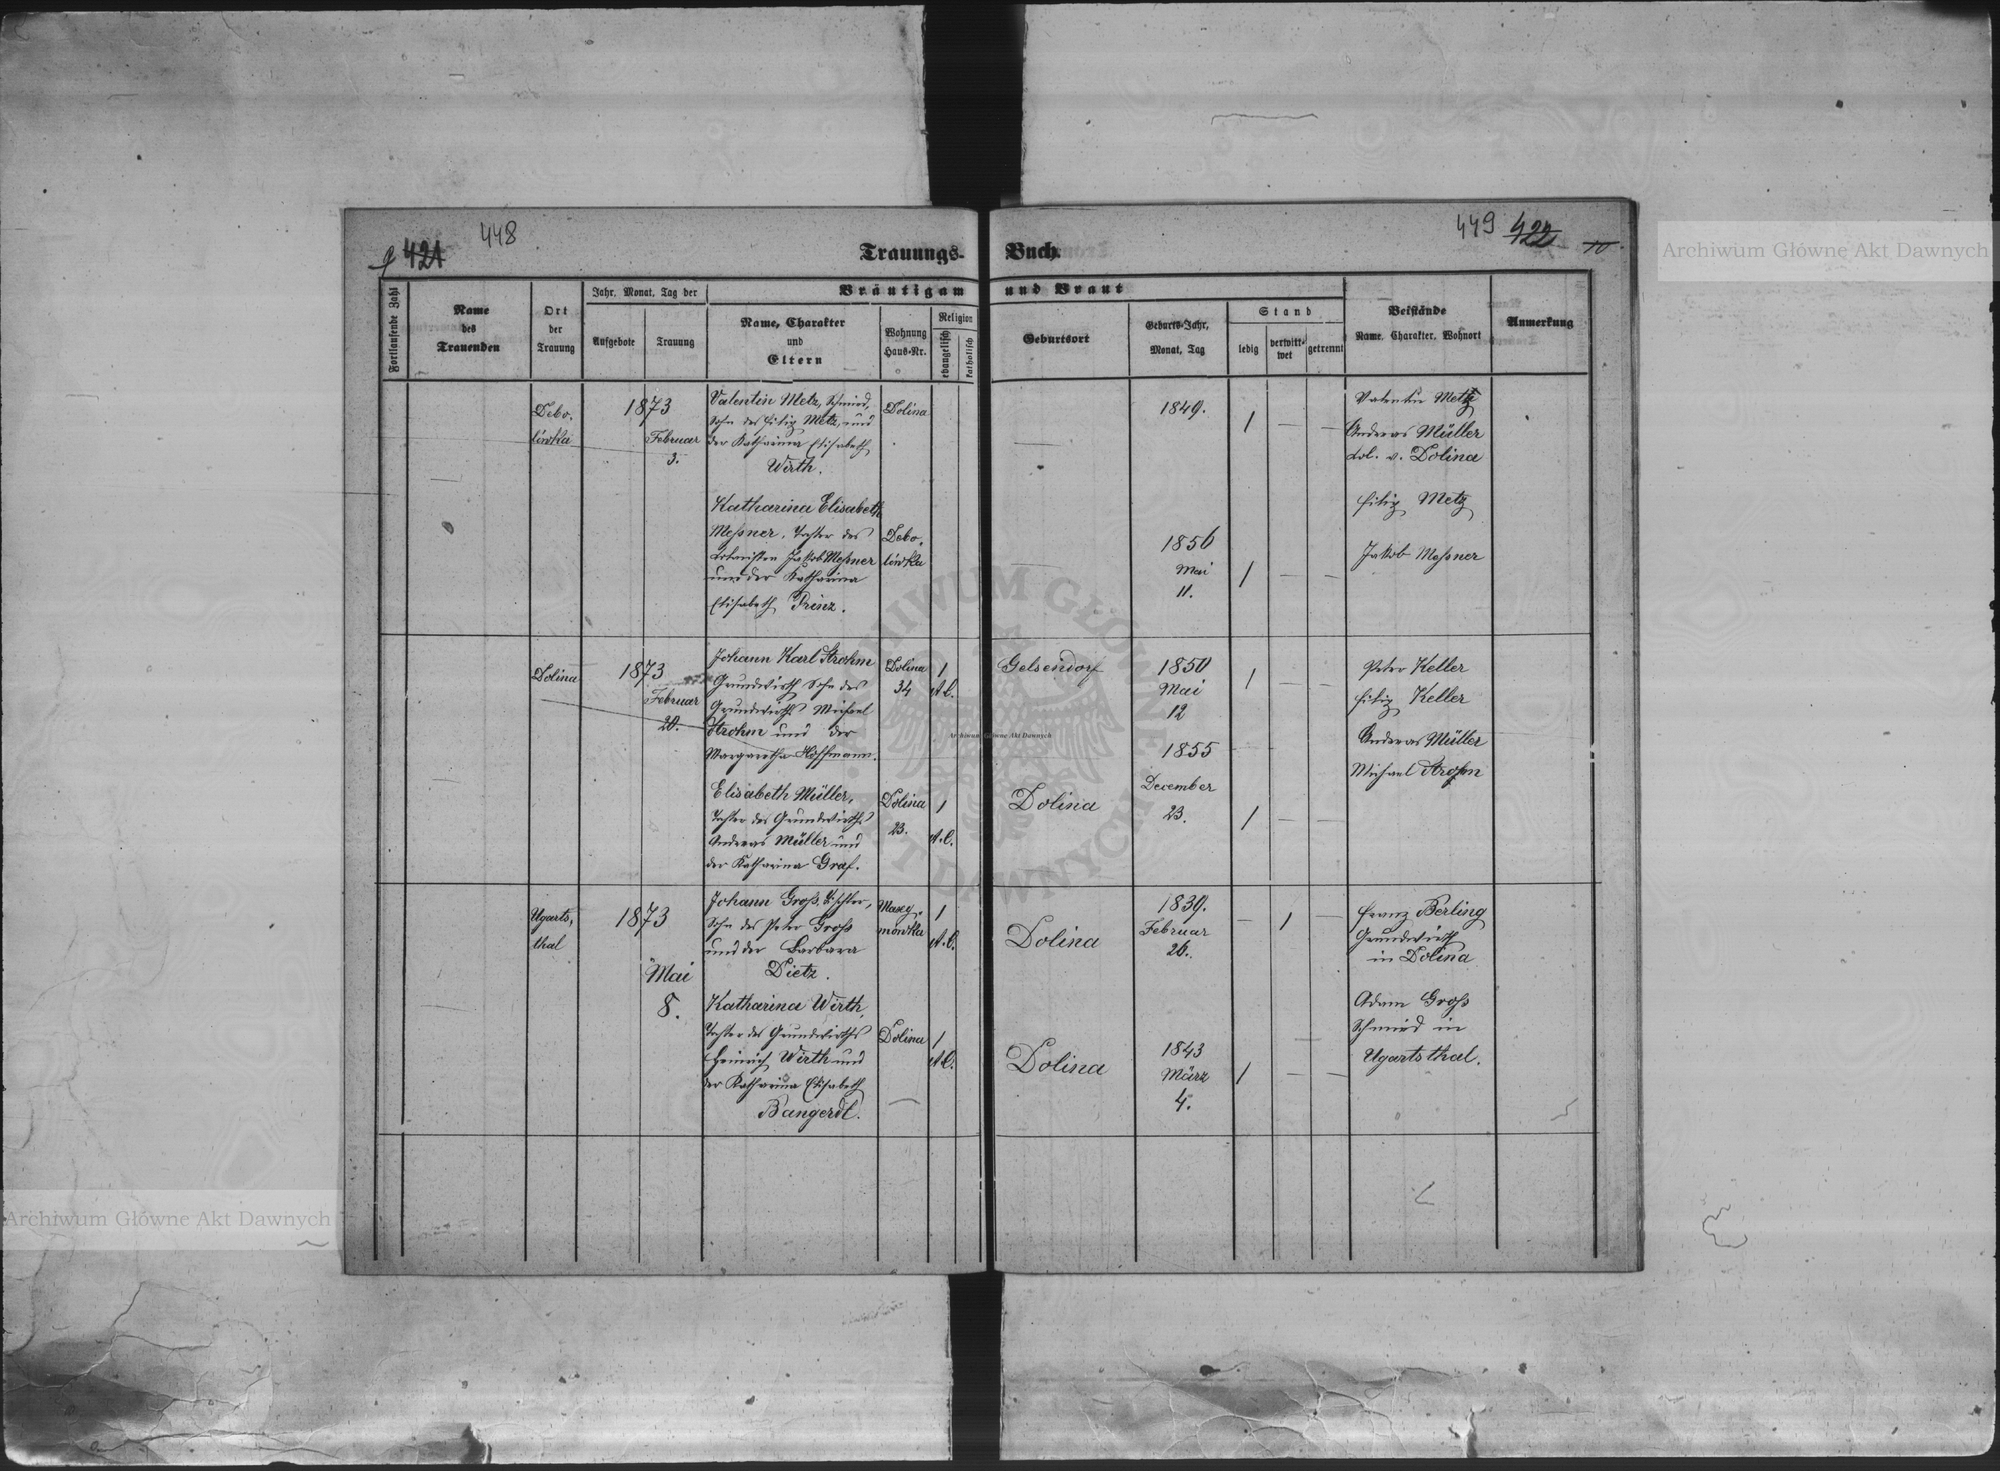 448
449
9
421
422
10
Trauungs-
Buch
Archiwum Główne Akt Dawnych
Fortlaufende Zahl
Name
des
Trauenden
Ort
der
Trauung
Jahr, Monat, Tag der
Aufgebote
Trauung
Bräutigam
und Braut
Name, Charakter
und
Eltern
Wohnung
Haus-Nr.
Religion
evangelisch
katholisch
Geburtsort
Geburts-Jahr,
Monat, Tag
Stand
ledig
verwitt-
wet
getrennt
Beistände
Name, Charakter, Wohnort
Anmerkung
Debo-
lówka
1873
Februar
3.
Valentin Metz, Schmied,
Sohn des Filip Metz, und
der Katharina Elisabeth
Wirth.
Dolina
1849.
1
Valentin Metz
Andreas Müller
Kol. v. Dolina
Katharina Elisabeth
Messner, Tochter des
Jakob Messner
und der Katharina
Elisabeth Prinz.
Debo-
lówka
1850
Mai
11.
1
Filip Metz
Jakob Messner
Dolina
1873
Februar
20.
Johann Karl Strohm
Grundwirth Sohn des
Grundwirths Michael
Strohm und der
Margaretha Hoffmann.
Dolina
34
1
A.C.
Gelsendorf
1850
Mai
12
1
Peter Keller
Filip Keller
Andreas Müller
Michael Strohm
Elisabeth Müller,
Tochter des Grundwirths
Andreas Müller und
der Katharina Graf.
Dolina
23.
1
A.C.
Dolina
1855
December
23.
1
Ugarts-
thal
1873
Mai
8.
Johann Gross, Tischler,
Sohn des Peter Gross
und der Barbara
Dietz.
mówka
1
A.C.
Dolina
1839.
Februar
26.
1
Franz Berling
Grundwirth
in Dolina
Katharina Wirth,
Tochter des Grundwirths
Heinrich Wirth und
der Katharina Elisabeth
Bangerdt.
Dolina
1
A.C.
Dolina
1843
März
4.
1
Adam Gross
Schmied in
Ugartsthal.
ARCHIWUM GŁÓWNE AKT DAWNYCH
Archiwum Główne Akt Dawnych
Archiwum Główne Akt Dawnych